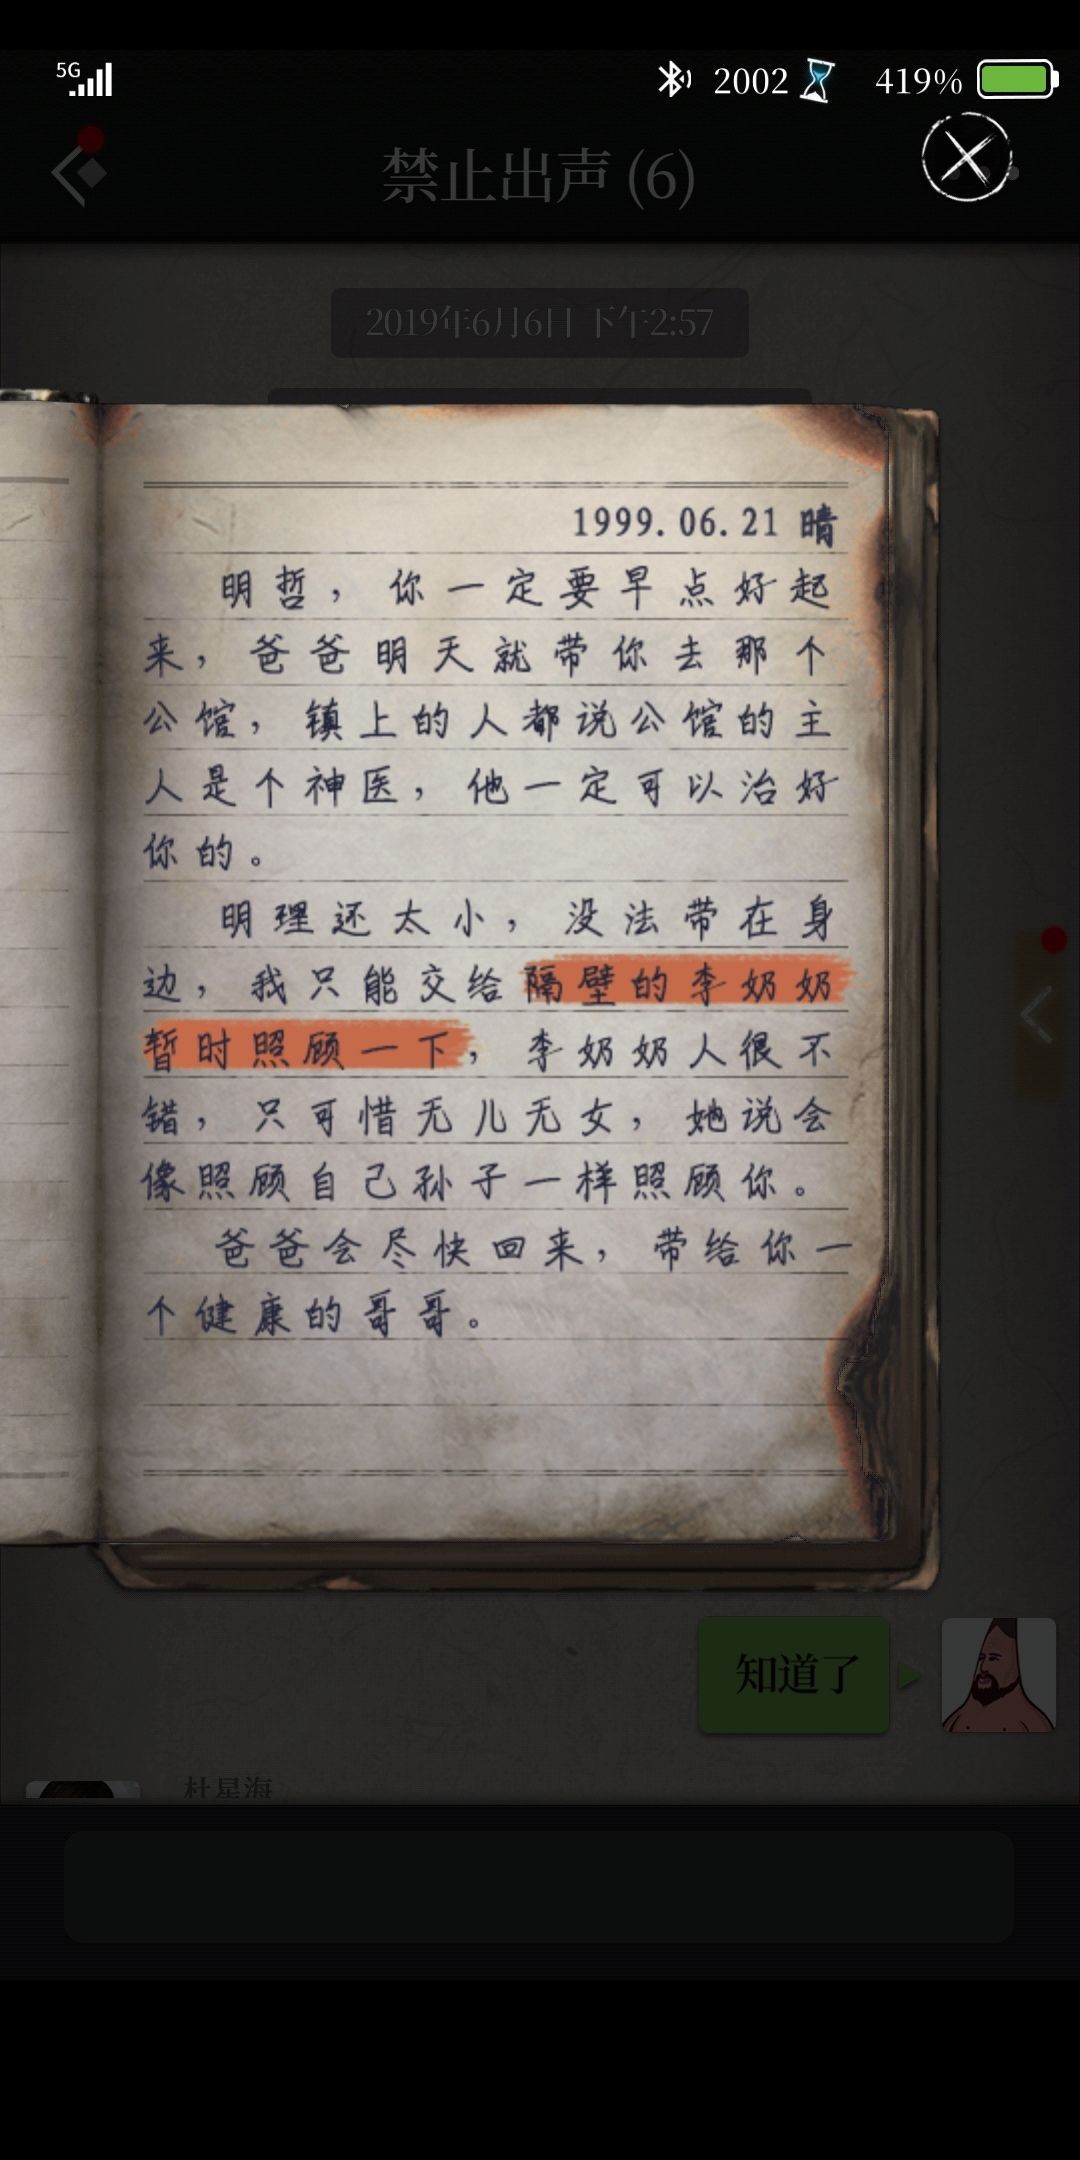 5G 2002 419%
禁止出声 (6)
2019年6月6日 下午2:57
1999.06.21 晴
明哲，你一定要早点好起
来，爸爸明天就带你去那个
公馆，镇上的人都说公馆的主
人是个神医，他一定可以治好
你的。
明理还太小，没法带在身
边，我只能交给隔壁的李奶奶
暂时照顾一下，李奶奶人很不
错，只可惜无儿无女，她说会
像照顾自己孙子一样照顾你。
爸爸会尽快回来，带给你一
个健康的哥哥。
知道了
杜星海